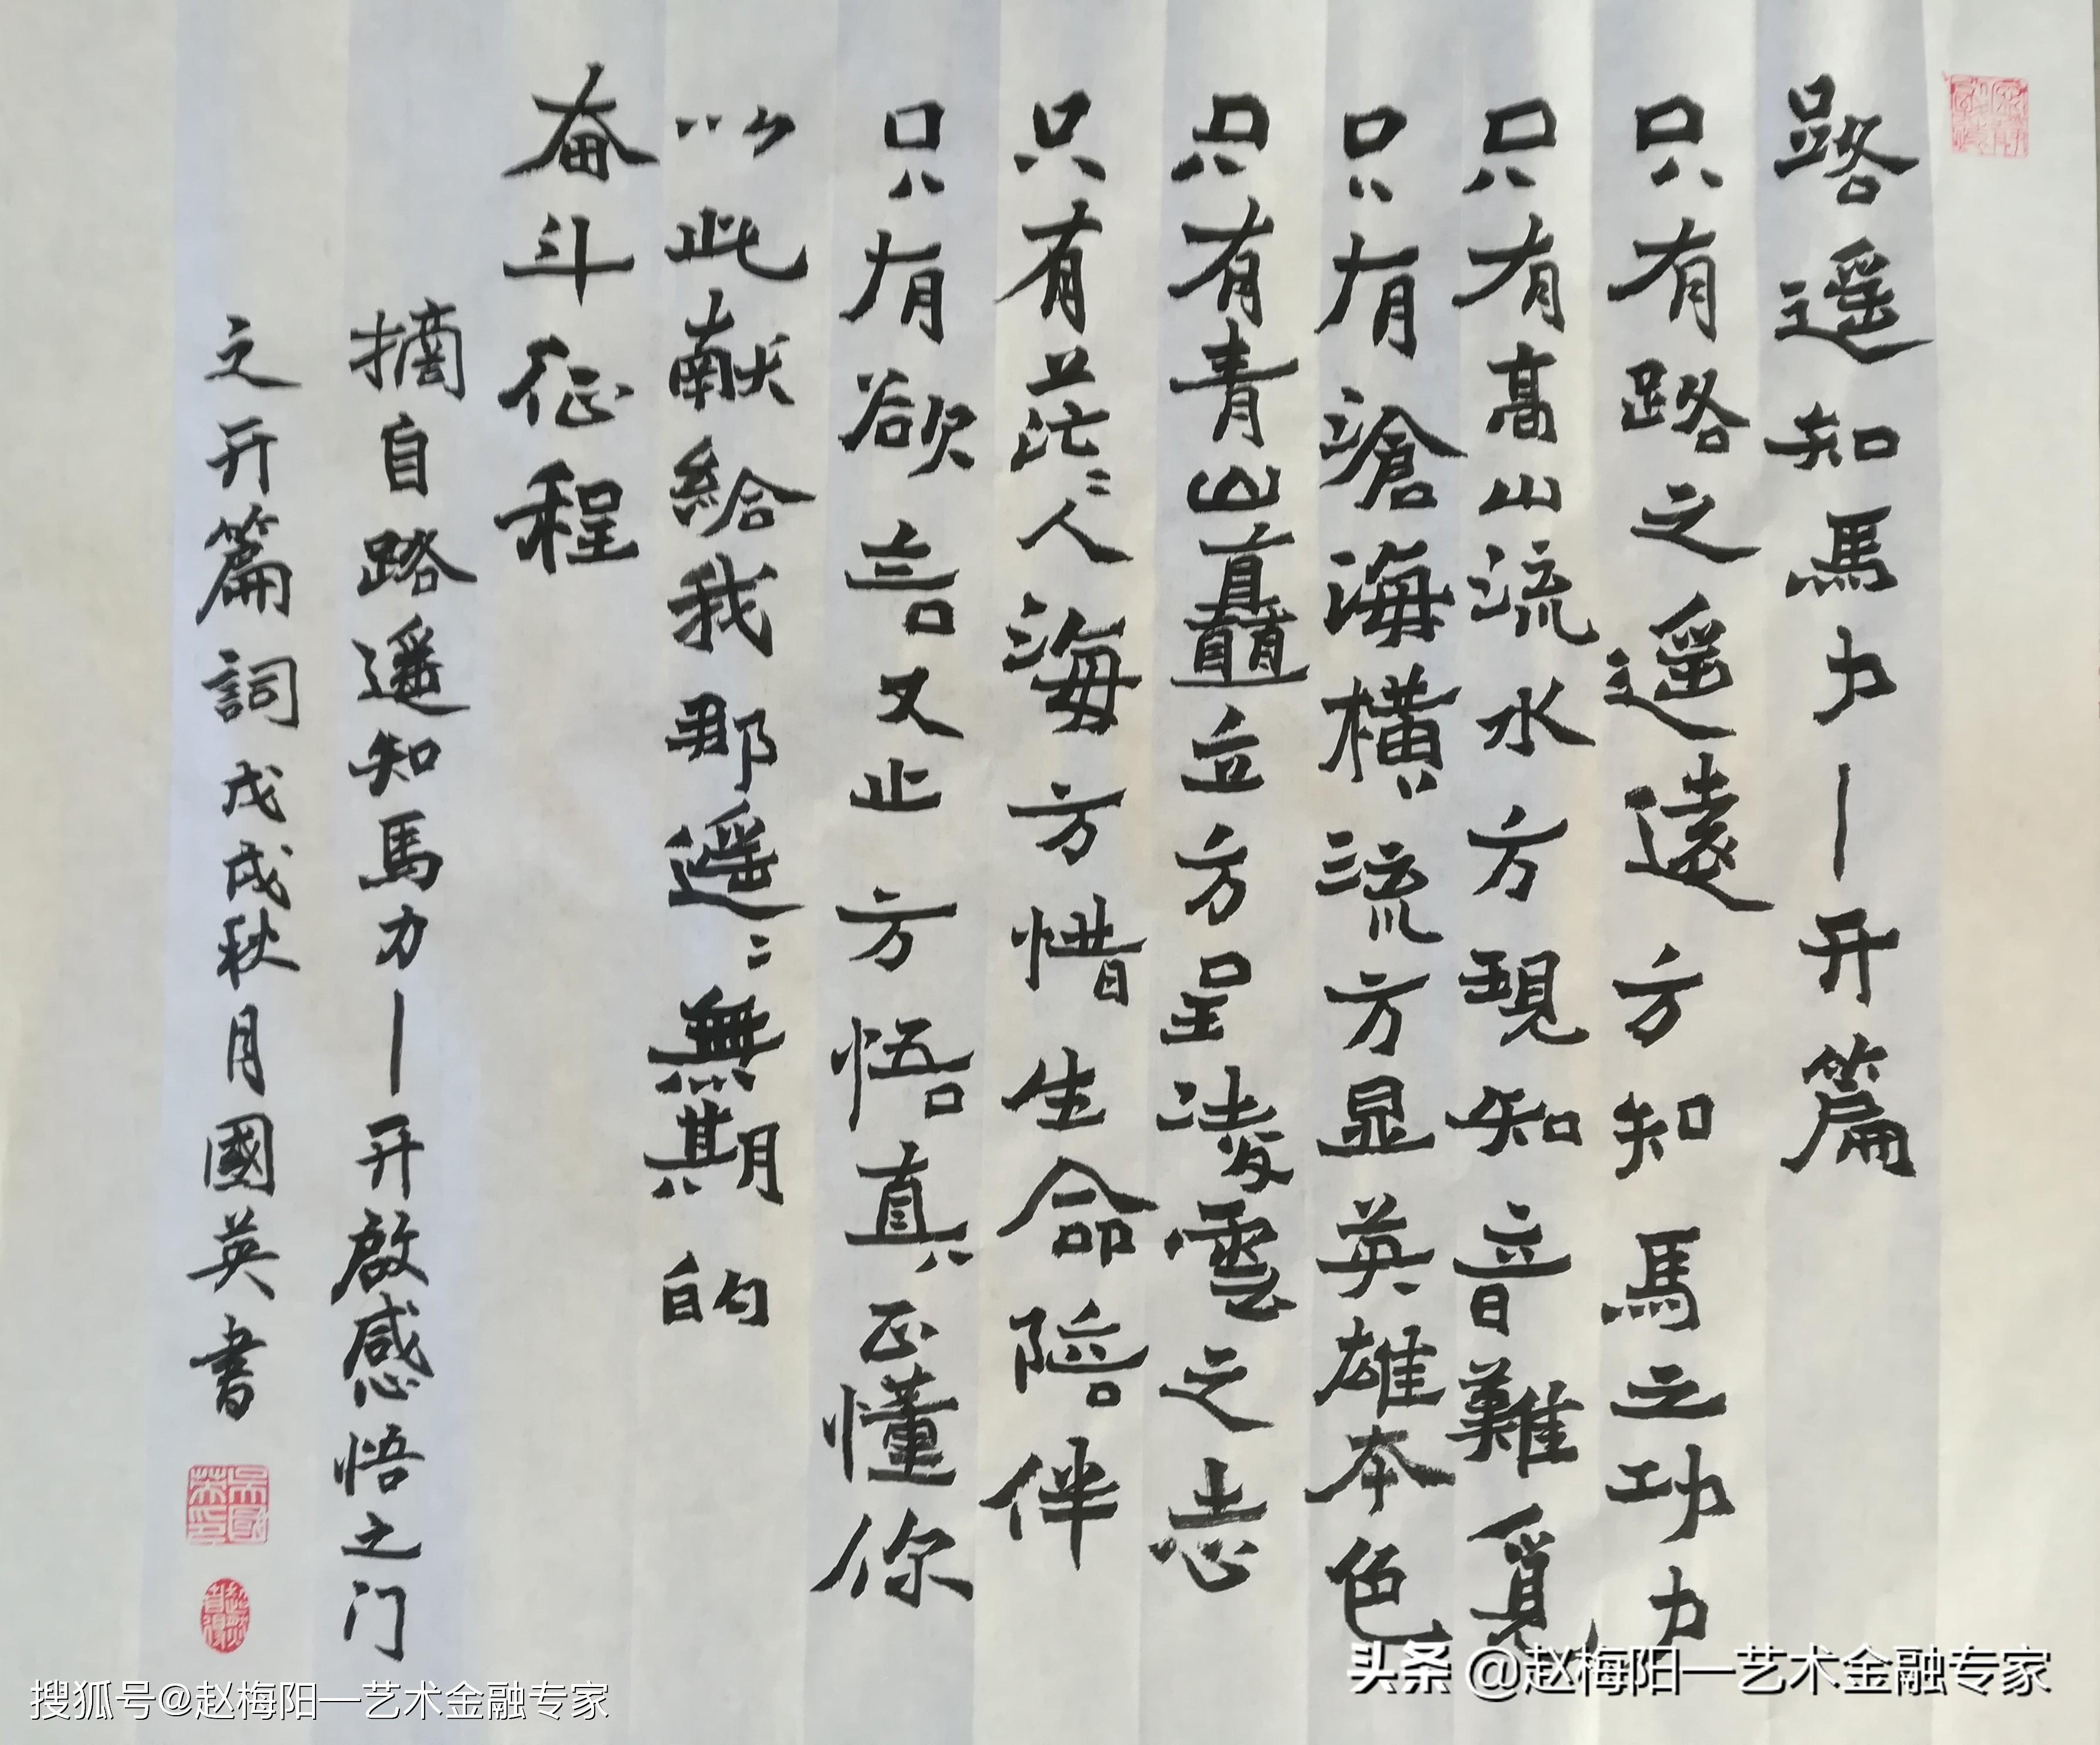 路遥知馬力—开篇
只有路之遥遠方知馬之功力
只有高山流水方現知音難覓
只有滄海横流方显英雄本色
只有青山矗立方呈凌雲之志
只有茫〻人海方惜生命陪伴
只有欲言又止方悟真正懂你
以此献給我那遥〻無期的
奋斗征程
摘自路遥知馬力—开啟感悟之门
之开篇詞戊戌秋月國英書
搜狐号@赵梅阳—艺术金融专家
头条 @赵梅阳—艺术金融专家